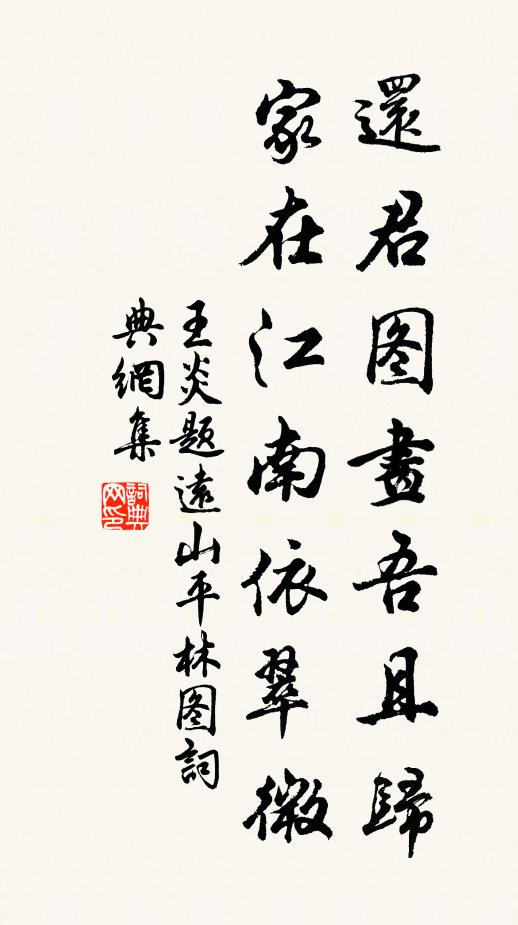 還君图畫吾且歸
家在江南依翠微
王炎題遠山平林图詞
典網集
詞典
网印